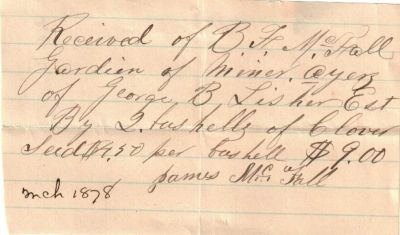 Received of B. F. McFall
Gardien of Miner. Ayers
of George B. Lisher Est
By 2. bushells of Clover
Seid $4.50 per bushell $9.00
James McFall
mch 1878